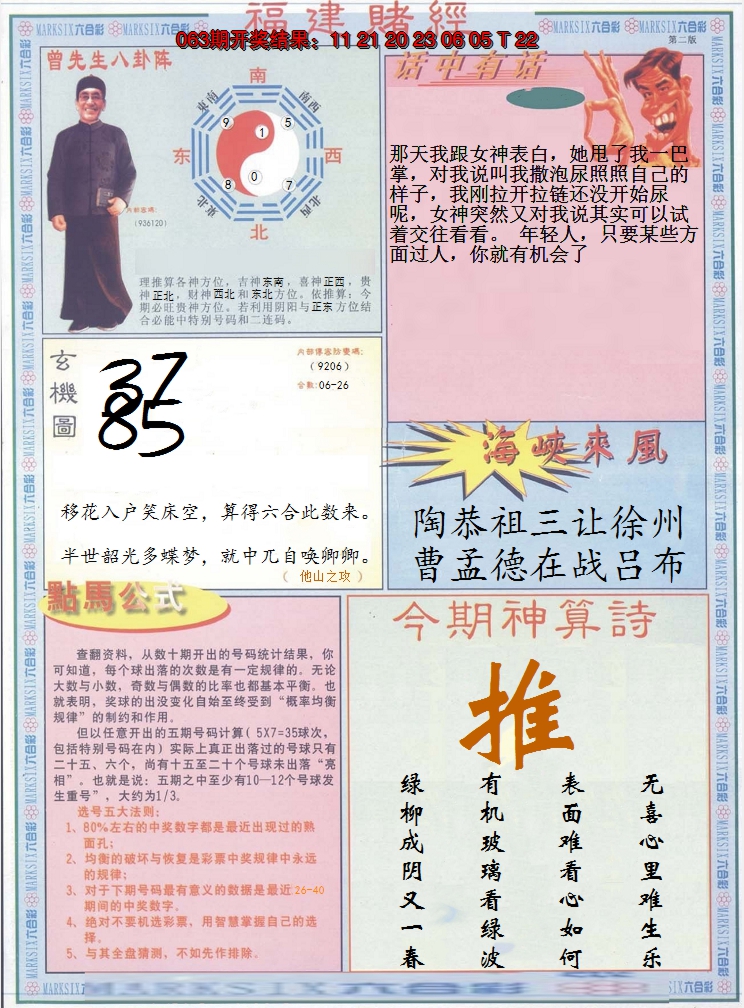 福建賭經
063期开奖结果：11 21 20 23 06 05 T 22
MARKSIX六合彩
第二版
曾先生八卦阵
南
东南
南西
9
1
5
东
西
8
0
7
東北
北西
北
内部密碼:
（936120）
理推算各神方位，吉神东南，喜神正西，贵
神正北，财神西北和东北方位。依推算：今
期必旺贵神方位。若利用阴阳与正东方位结
合必能中特别号码和二连码。
话中有话
那天我跟女神表白，她甩了我一巴
掌，对我说叫我撒泡尿照照自己的
样子，我刚拉开拉链还没开始尿
呢，女神突然又对我说其实可以试
着交往看看。 年轻人，只要某些方
面过人，你就有机会了
玄機圖
37
85
（9206）
合數:06-26
移花入户笑床空，算得六合此数来。
半世韶光多蝶梦，就中兀自唤卿卿。
（ 他山之攻 ）
海峽來風
陶恭祖三让徐州
曹孟德在战吕布
點馬公式
查翻资料，从数十期开出的号码统计结果，你
可知道，每个球出落的次数是有一定规律的。无论
大数与小数，奇数与偶数的比率也都基本平衡。也
就表明，奖球的出没变化自始至终受到“概率均衡
规律”的制约和作用。
但以任意开出的五期号码计算( 5X7=35球次，
包括特别号码在内) 实际上真正出落过的号球只有
二十五、六个，尚有十五至二十个号球未出落“亮
相”。也就是说：五期之中至少有10—12个号球发
生重号”，大约为1/3。
选号五大法则：
1、80%左右的中奖数字都是最近出现过的熟
面孔；
2、均衡的破坏与恢复是彩票中奖规律中永远
的规律；
3、对于下期号码最有意义的数据是最近26-40
期间的中奖数字。
4、绝对不要机选彩票，用智慧掌握自己的选
择。
5、与其全盘猜测，不如先作排除。
今期神算詩
推
绿柳成阴又一春
有机玻璃看绿波
表面难看心如何
无喜心里难生乐